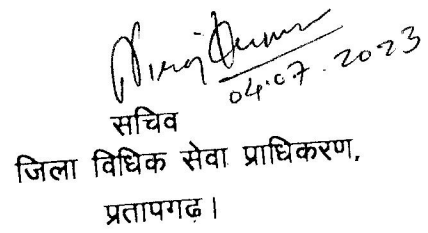 04.07.2023
सचिव
जिला विधिक सेवा प्राधिकरण,
प्रतापगढ़।